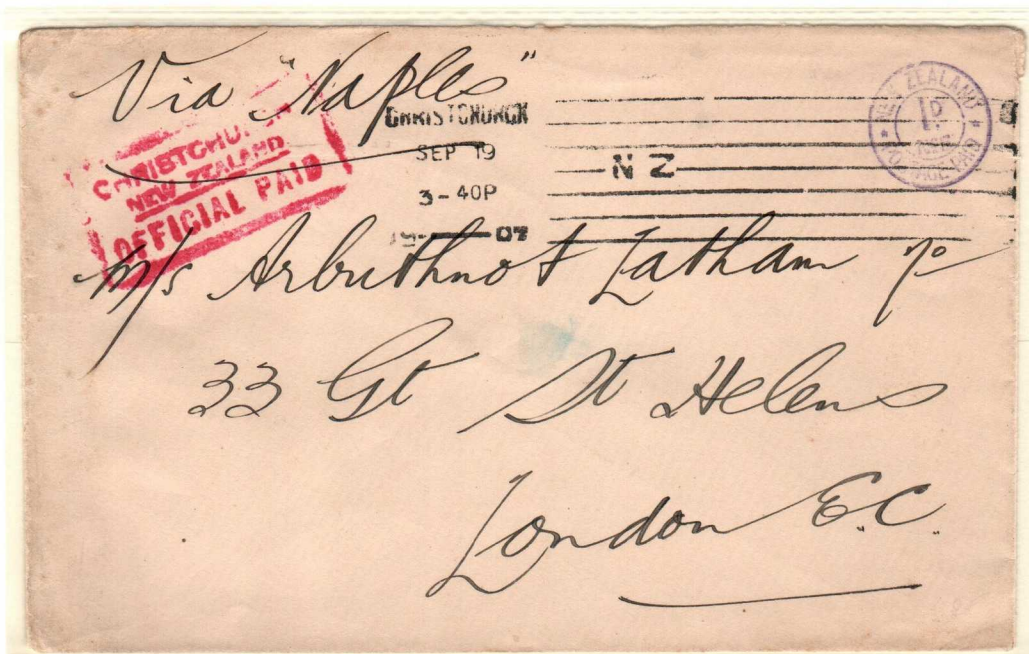 Via "Naples"
CHRISTCHURCH
NEW ZEALAND
OFFICIAL PAID
CHRISTCHURCH
SEP 19
3-40P
19 07
N Z
NEW ZEALAND
1D
POSTAGE PAID
M/s Arbuthnot Latham & Co
33 Gt St Helens
London E.C.